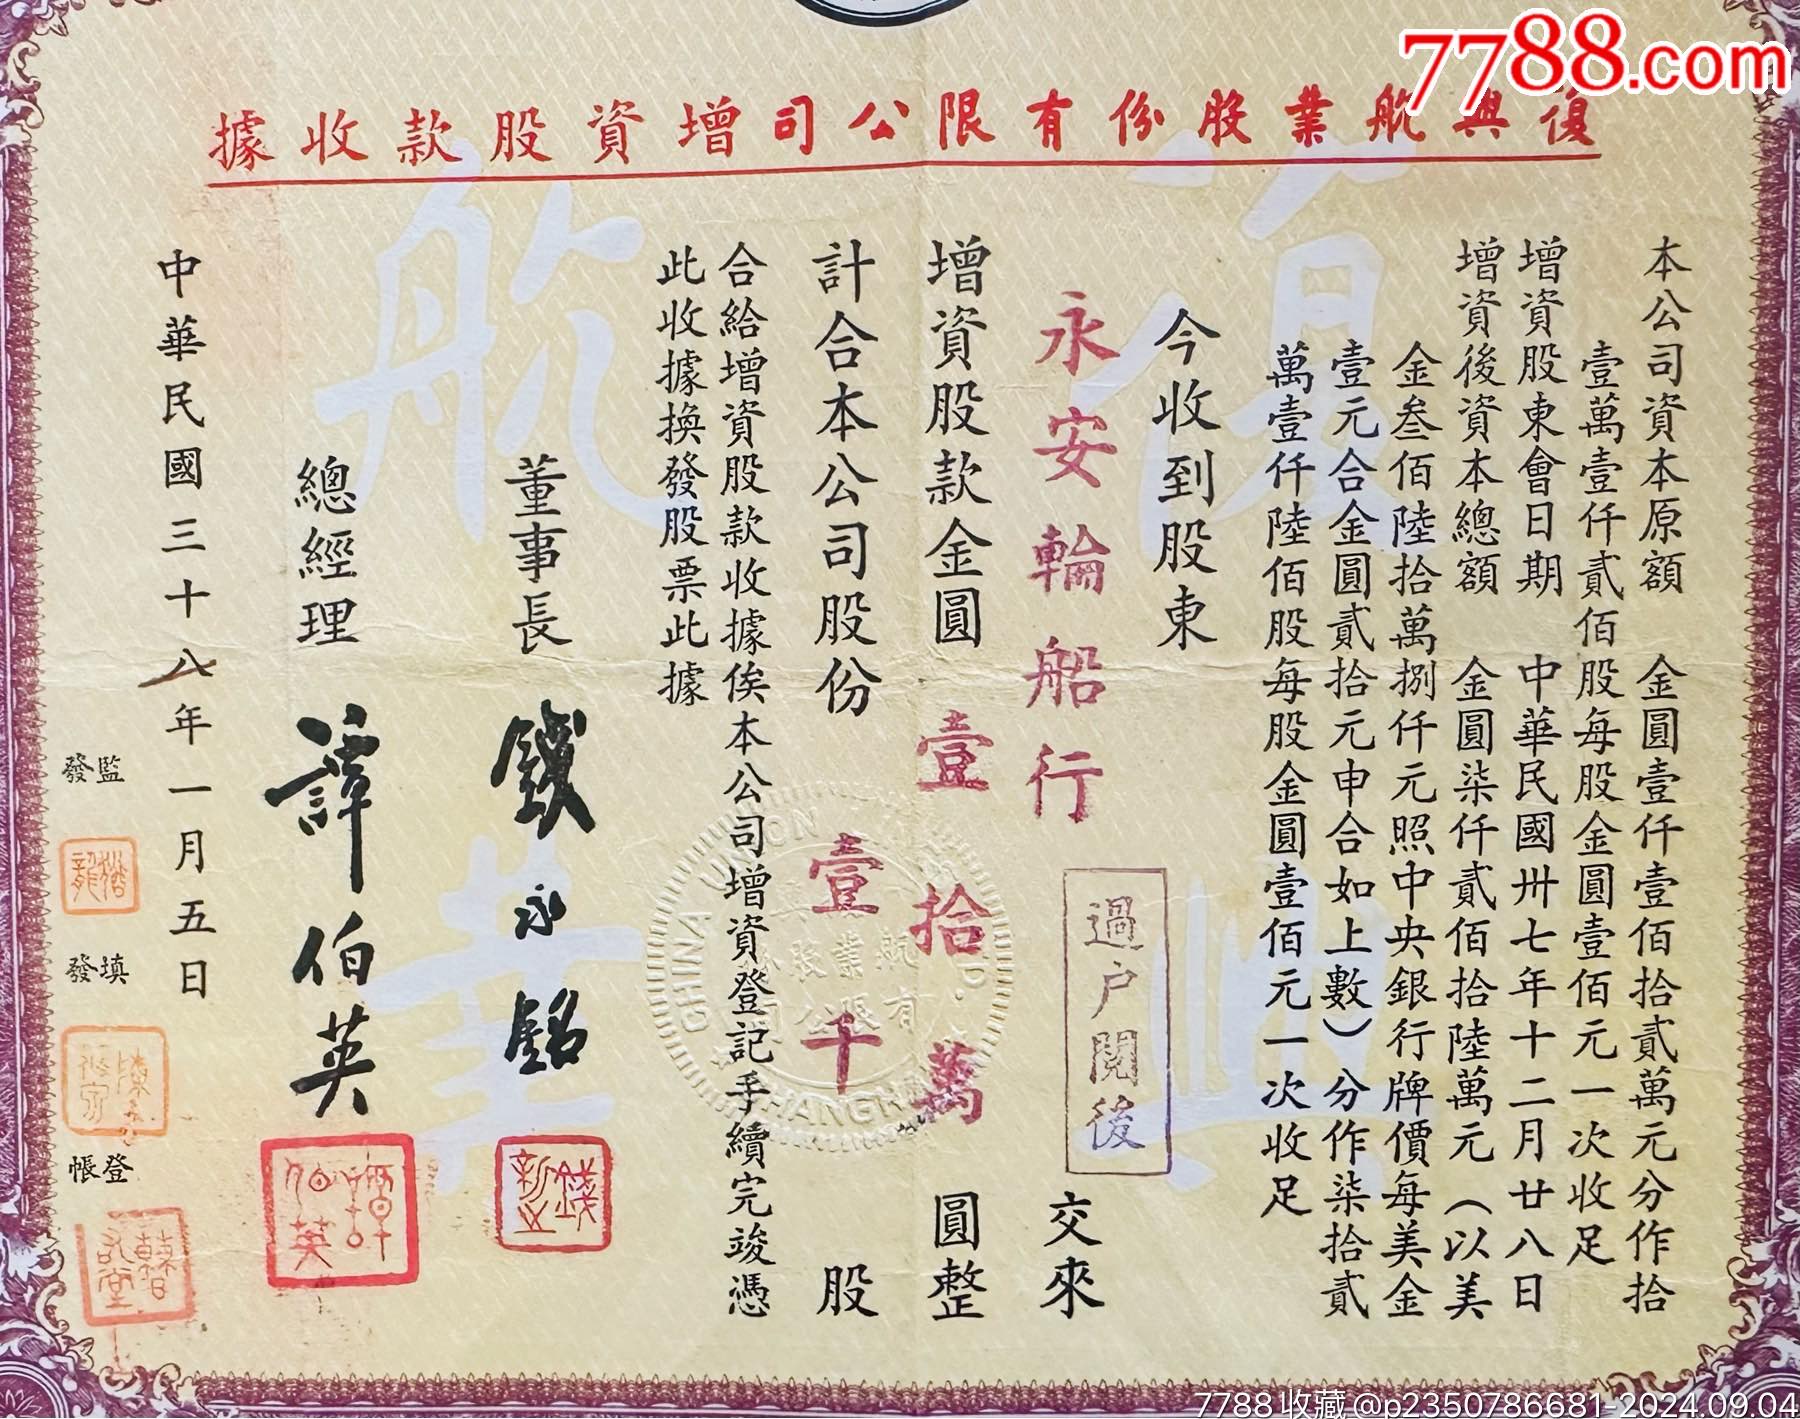 7788.com
復興航業股份有限公司增資股款收據
本公司資本原額　金圓壹仟壹佰拾貳萬元分作拾
壹萬壹仟貳佰股每股金圓壹佰元一次收足
增資股東會日期　中華民國卅七年十二月廿八日
增資後資本總額　金圓柒仟貳佰拾陸萬元（以美
金叁佰陸拾萬捌仟元照中央銀行牌價每美金
壹元合金圓貳拾元申合如上數）分作柒拾貳
萬壹仟陸佰股每股金圓壹佰元一次收足
今收到股東
永安輪船行　交來
過户閱後
增資股款金圓　壹拾萬　圓整
計合本公司股份　壹千　股
合給增資股款收據俟本公司增資登記手續完竣憑
此收據換發股票此據
董事長　錢永銘
錢新之
總經理　譚伯英
譚伯英
中華民國三十八年一月五日
監發
填發
登帳
CHINA UNION
SHANGH
7788收藏@p2350786681-2024.09.04